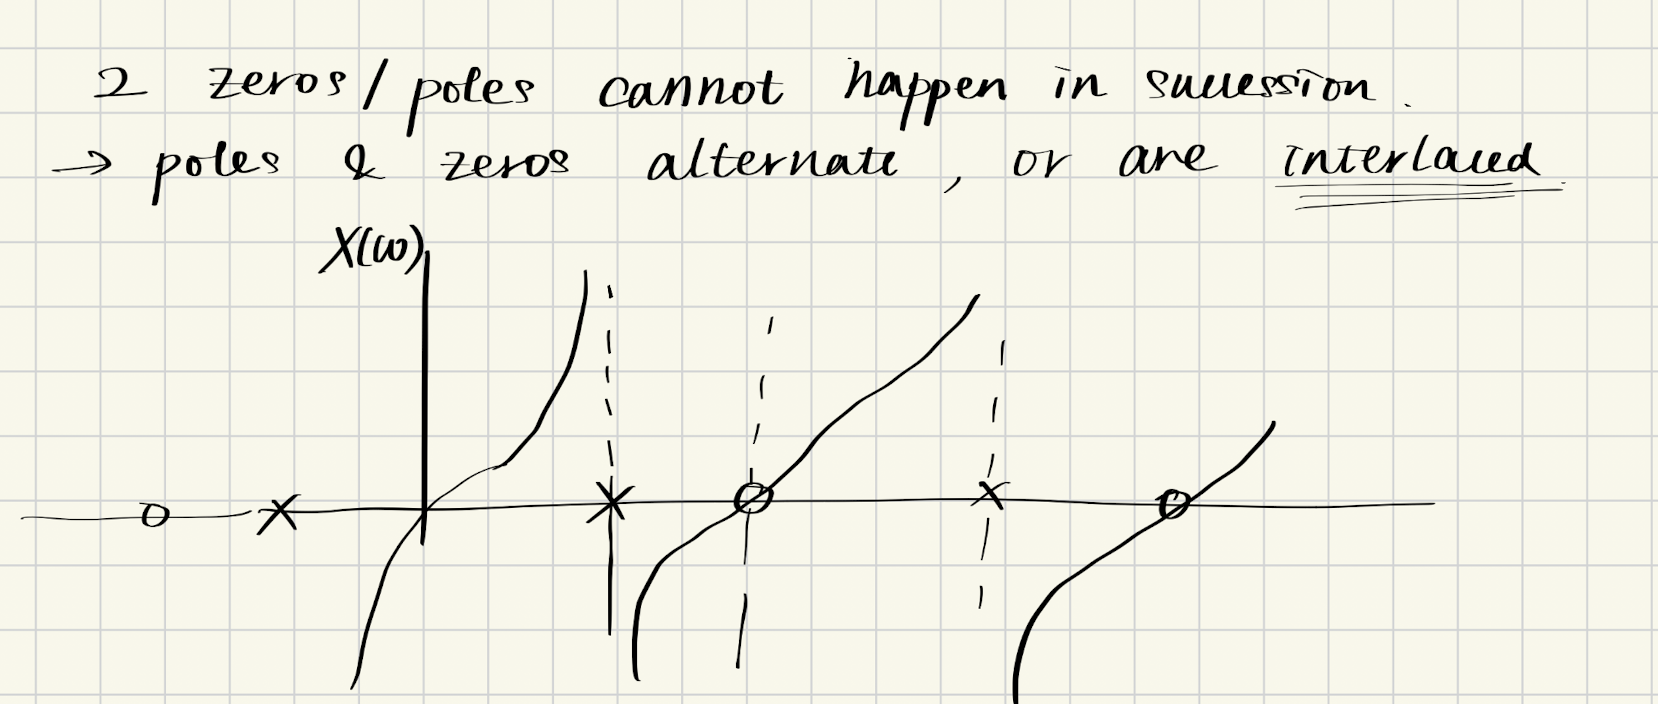 2 zeros/poles cannot happen in succession.
→ poles & zeros alternate, or are interlaced
X(ω)